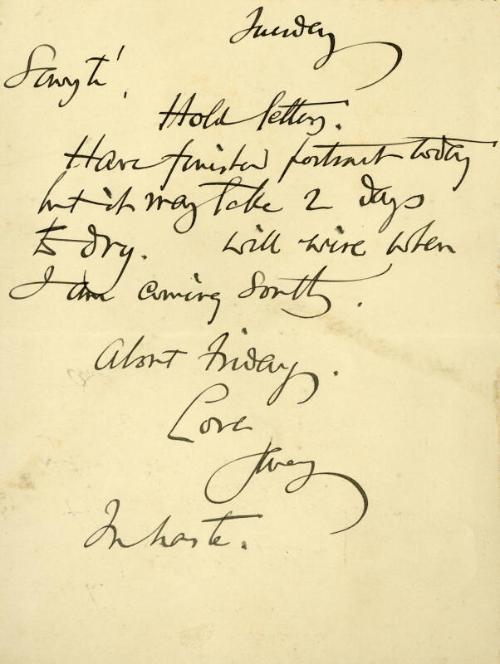 Tuesday
Hold letters.
Have finished portrait today
but it may take 2 days
to dry. will wire when
I am coming South.
About Friday.
Love
In haste.